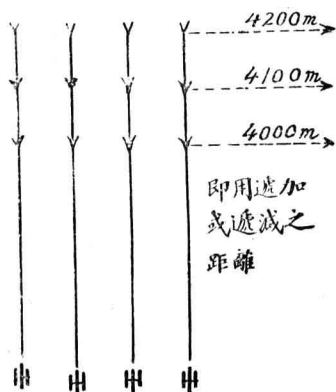 4200m
4100m
4000m
即用遞加
或遞減之
距離